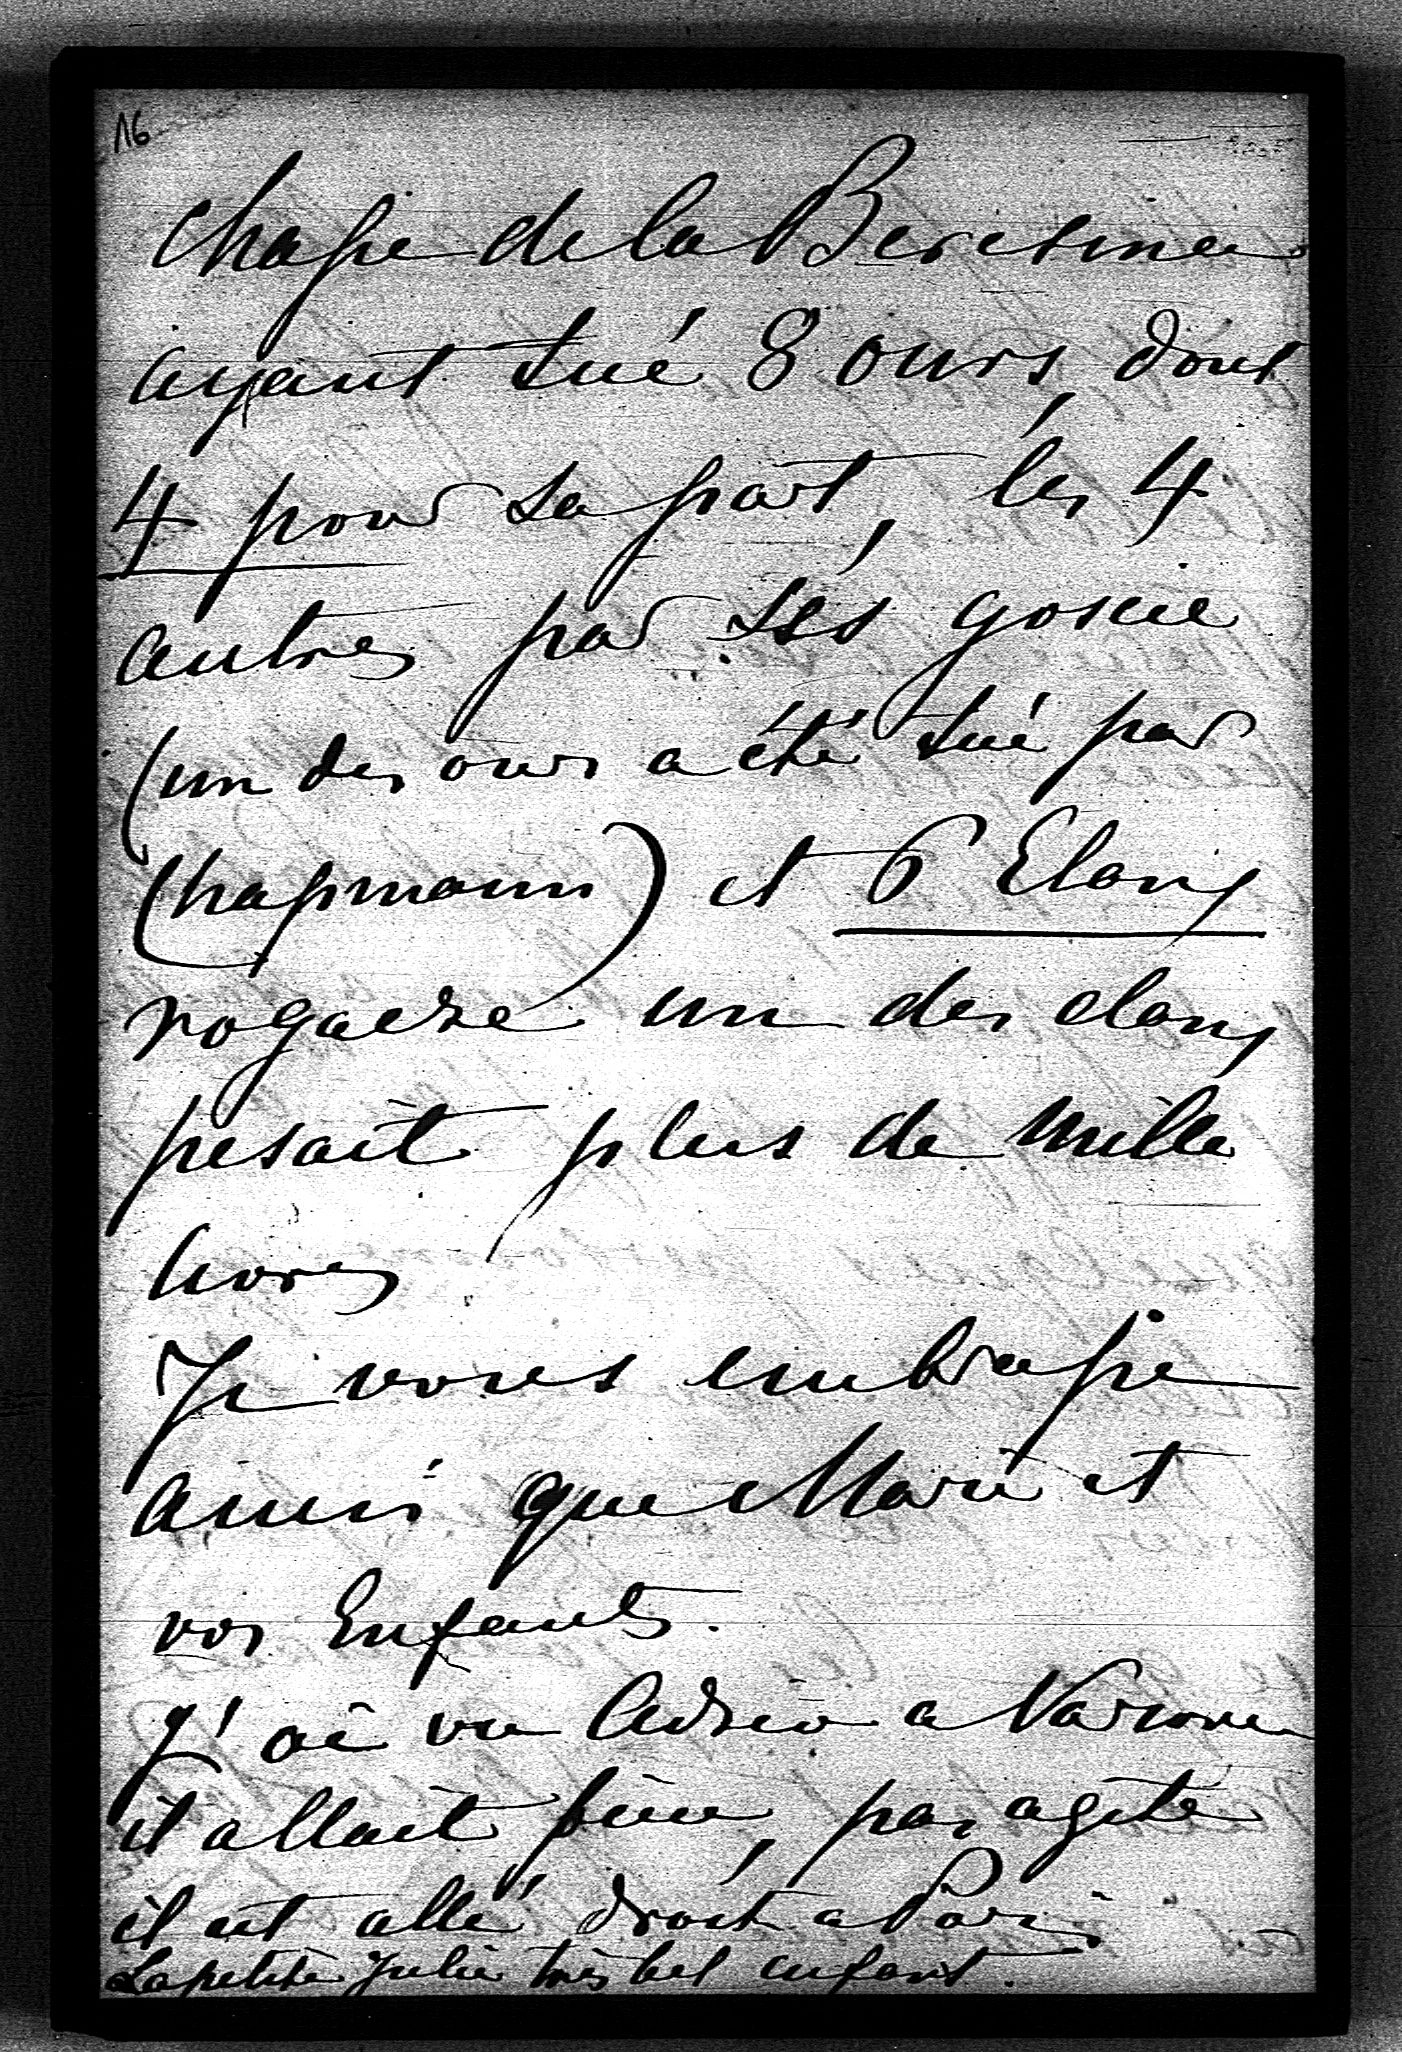 16
chasse de la Beresinea
ayant tué 8 ours, dont
4 pour sa part, les 4
autres par ses goscie
(un des ours a été tué par
Chapmann) et 6 Elans
rogacze un des elans
pesait plus de mille
livres
Je vous embrasse
ainsi que Marie et
vos Enfants.
J'ai vu Adzio a Varsovie
il allait bien, pas agité
il est allé droit a Paris
La petite Julie très bel enfant.